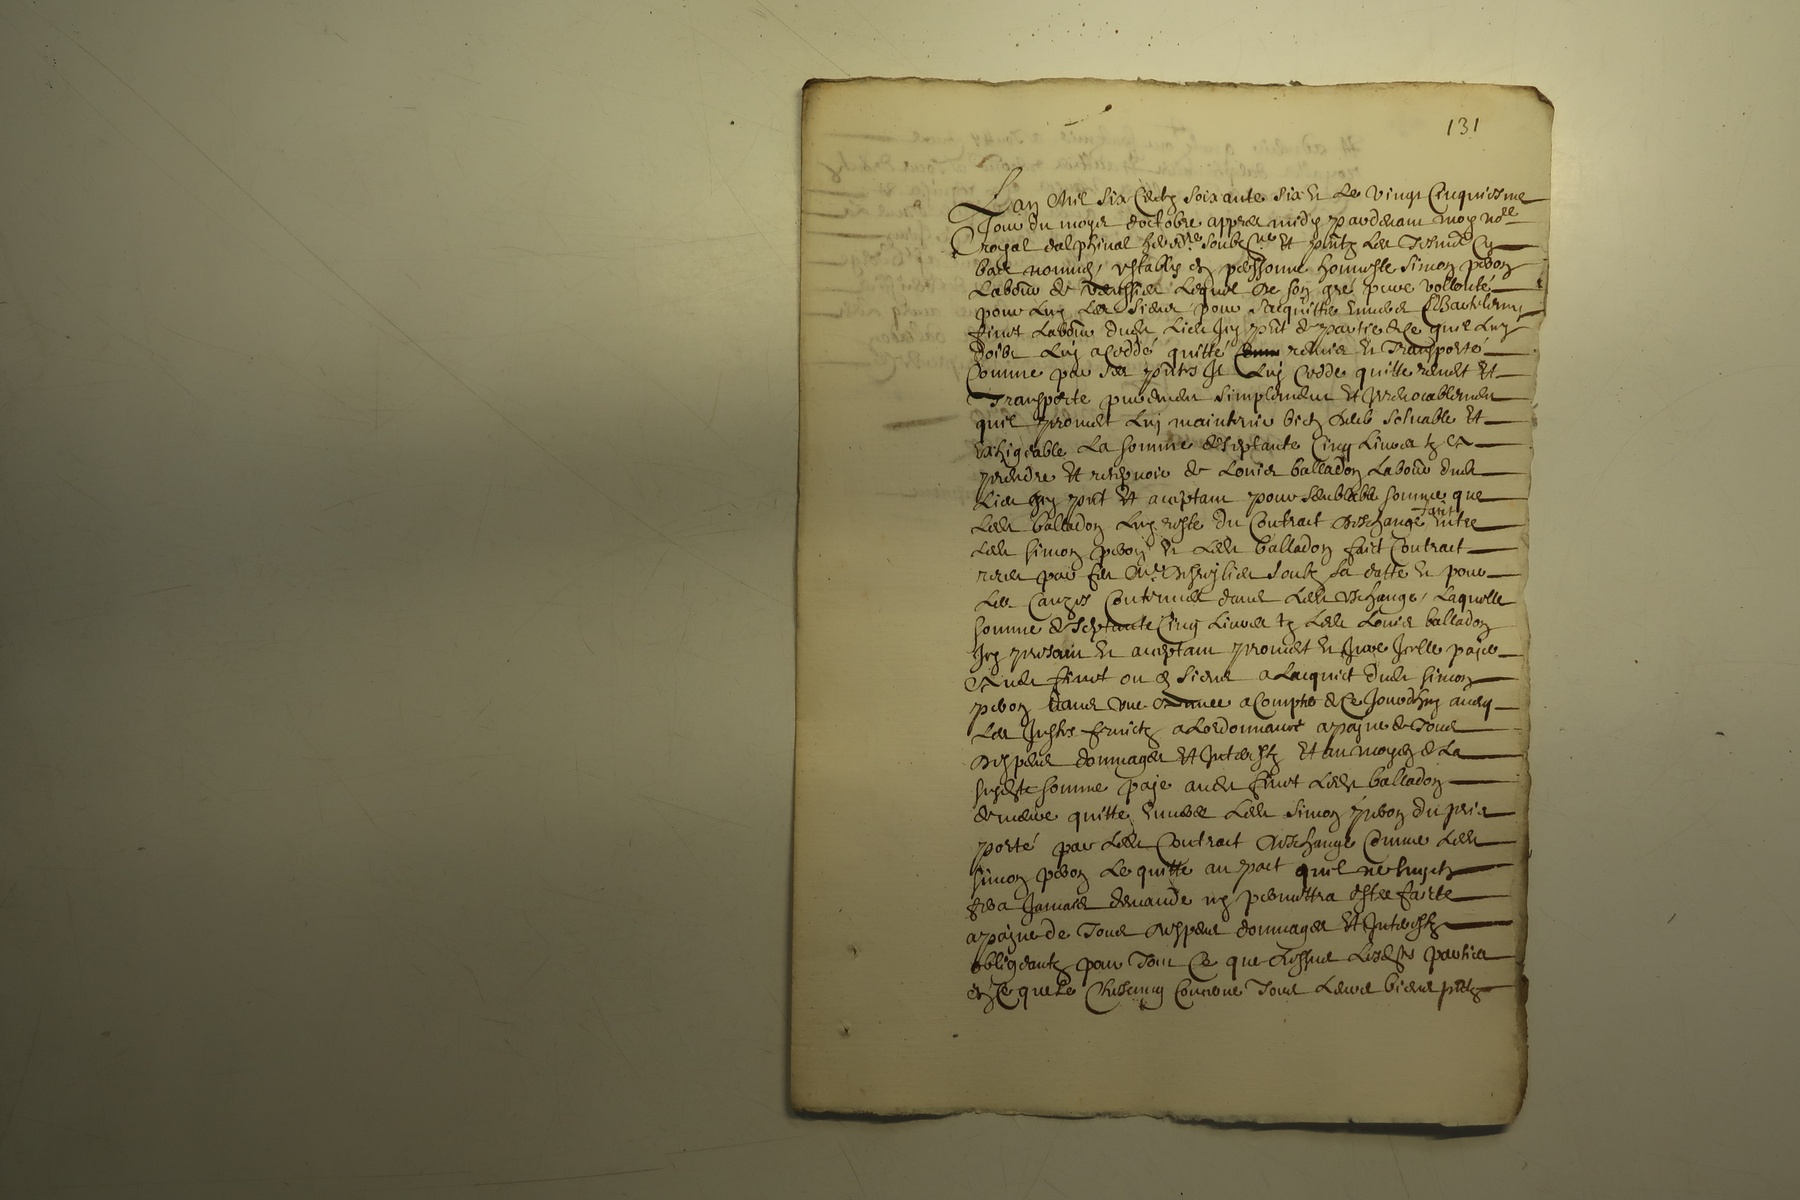 131
Lan Mil six Centz soixante six et le vingt Cinquiesme
Jour du moys doctobre appres midy pardevant moy no.re
royal dalphinal soubz.ne et pntz les tesmoingz
bas nommes, establis en personne honneste Simon
Labour de lequel de son gré pure vollonté
pour luy les siens pour sacquitter envers Barthelemy
finet Labour dudit lieu icy pnt de partie de ce quil luy
doibt luy a ceddé quitté remis et transporté
Comme par ses pntes Il luy cedde quitte remet et
transporte purement simplement et irrevocablement
quil promet luy maintenir bien deub solvable et
exhigeable La somme de septante Cinq Livres tz a
prendre et resepvoir de Louis balladon Labour dudit
Lieu Icy pnt et aceptant pour semblable somme que
Ledit balladon luy reste du Contrat deschange fait entre
Ledit Simon et Ledit balladon fait Contract
receu par feu M.e soubz sa datte et pour
Les Causes Contenues dans Ledit eschange, Laquelle
somme de septante Cinq Livres tz Ledit Louis balladon
Icy presant et aceptant promet et Jure Icelle payer
Audit finet ou es siens a Lacquict dudit Simon
dans une Annee a Compter de Ce Jourdhuy avecq
Les Justes fruictz a Lordonnance a payne de tous
despens dommages et Interestz et au moyen de La
susdite somme paye audit finet Ledit balladon
demeure quitte envers Ledit Simon du pris
porté par Ledit Contract deschange Comme Ledit
Simon Le quitte au pact quil ne luy en
fera Jamais demande ny permettra estre faicte
a payne de tous despens dommages et Interestz
obligeantz pour tout Ce que dessus Lesdites parties
en Ce que Le Chascung Concerne tous Leurs biens pntz